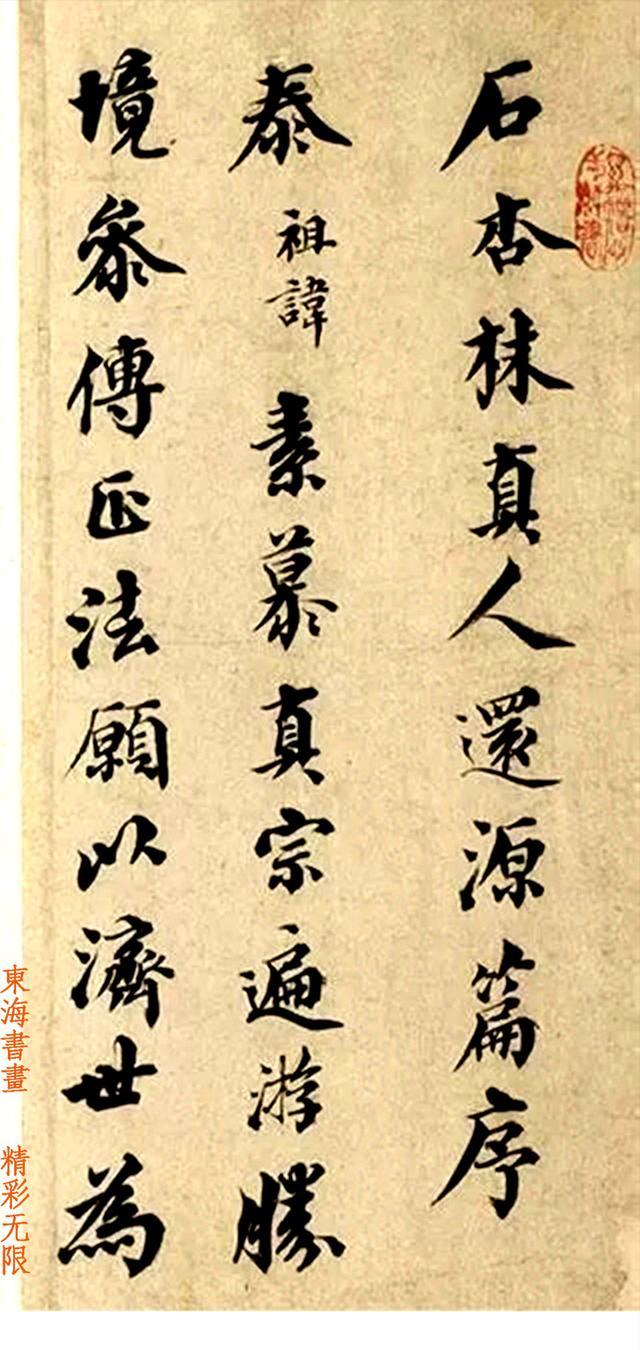 石杏林真人還源篇序
泰祖諱素慕真宗遍游勝
境參傳正法願以濟世為
東海書畫 精彩无限